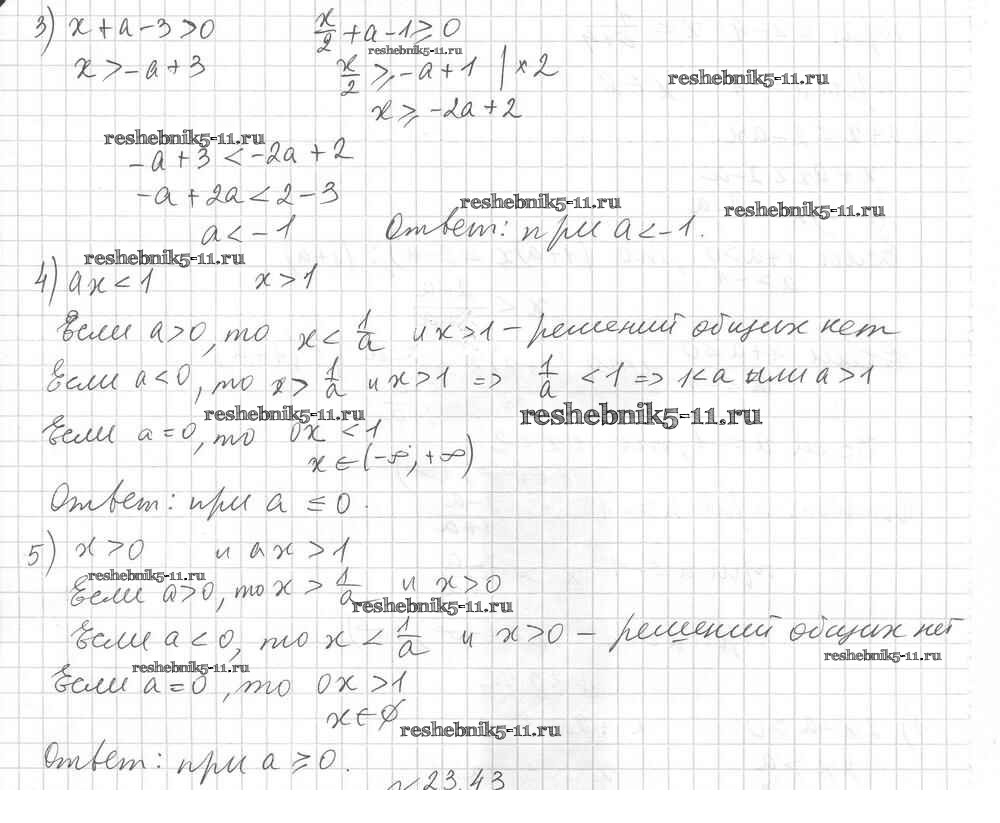 3) x + a - 3 > 0    x/2 + a - 1 ≥ 0
reshebnik5-11.ru
x > -a + 3    x/2 ≥ -a + 1 | × 2
reshebnik5-11.ru
x ≥ -2a + 2
reshebnik5-11.ru
-a + 3 < -2a + 2
-a + 2a < 2 - 3
reshebnik5-11.ru
reshebnik5-11.ru
a < -1    Ответ: при a < -1.
reshebnik5-11.ru
4) ax < 1    x > 1
Если a > 0, то x < 1/a и x > 1 – решений общих нет
Если a < 0, то x > 1/a и x > 1 => 1/a < 1 => 1 < a или a > 1
reshebnik5-11.ru
reshebnik5-11.ru
Если a = 0, то 0x < 1
x ∈ (-∞; +∞)
Ответ: при a ≤ 0.
5) x > 0 и ax > 1
reshebnik5-11.ru
Если a > 0, то x > 1/a и x > 0
reshebnik5-11.ru
Если a < 0, то x < 1/a и x > 0 – решений общих нет
reshebnik5-11.ru
reshebnik5-11.ru
Если a = 0, то 0x > 1
x ∈ ∅
reshebnik5-11.ru
Ответ: при a ≥ 0.
№23.43